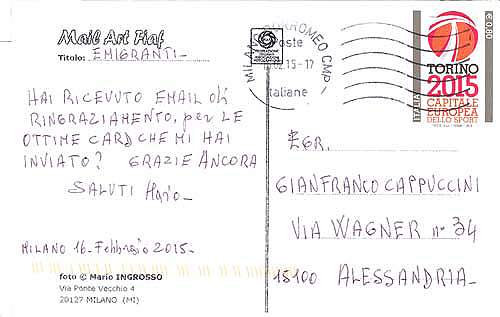 Mail Art Fiaf
Titolo: EMIGRANTI-
HAI RICEVUTO EMAIL di
RINGRAZIAMENTO, per LE
OTTIME CARD CHE MI HAI
INVIATO? GRAZIE ANCORA
SALUTI Mario-
MILANO 16-Febbraio 2015-
foto © Mario INGROSSO
Via Ponte Vecchio 4
20127 MILANO (MI)
MILANO BORROMEO CMP
Poste
.02.15-17
italiane
€ 0,80
ITALIA
TORINO
2015
CAPITALE
EUROPEA
DELLO SPORT
EGR.
GIANFRANCO CAPPUCCINI
VIA WAGNER n° 34
15100 ALESSANDRIA-